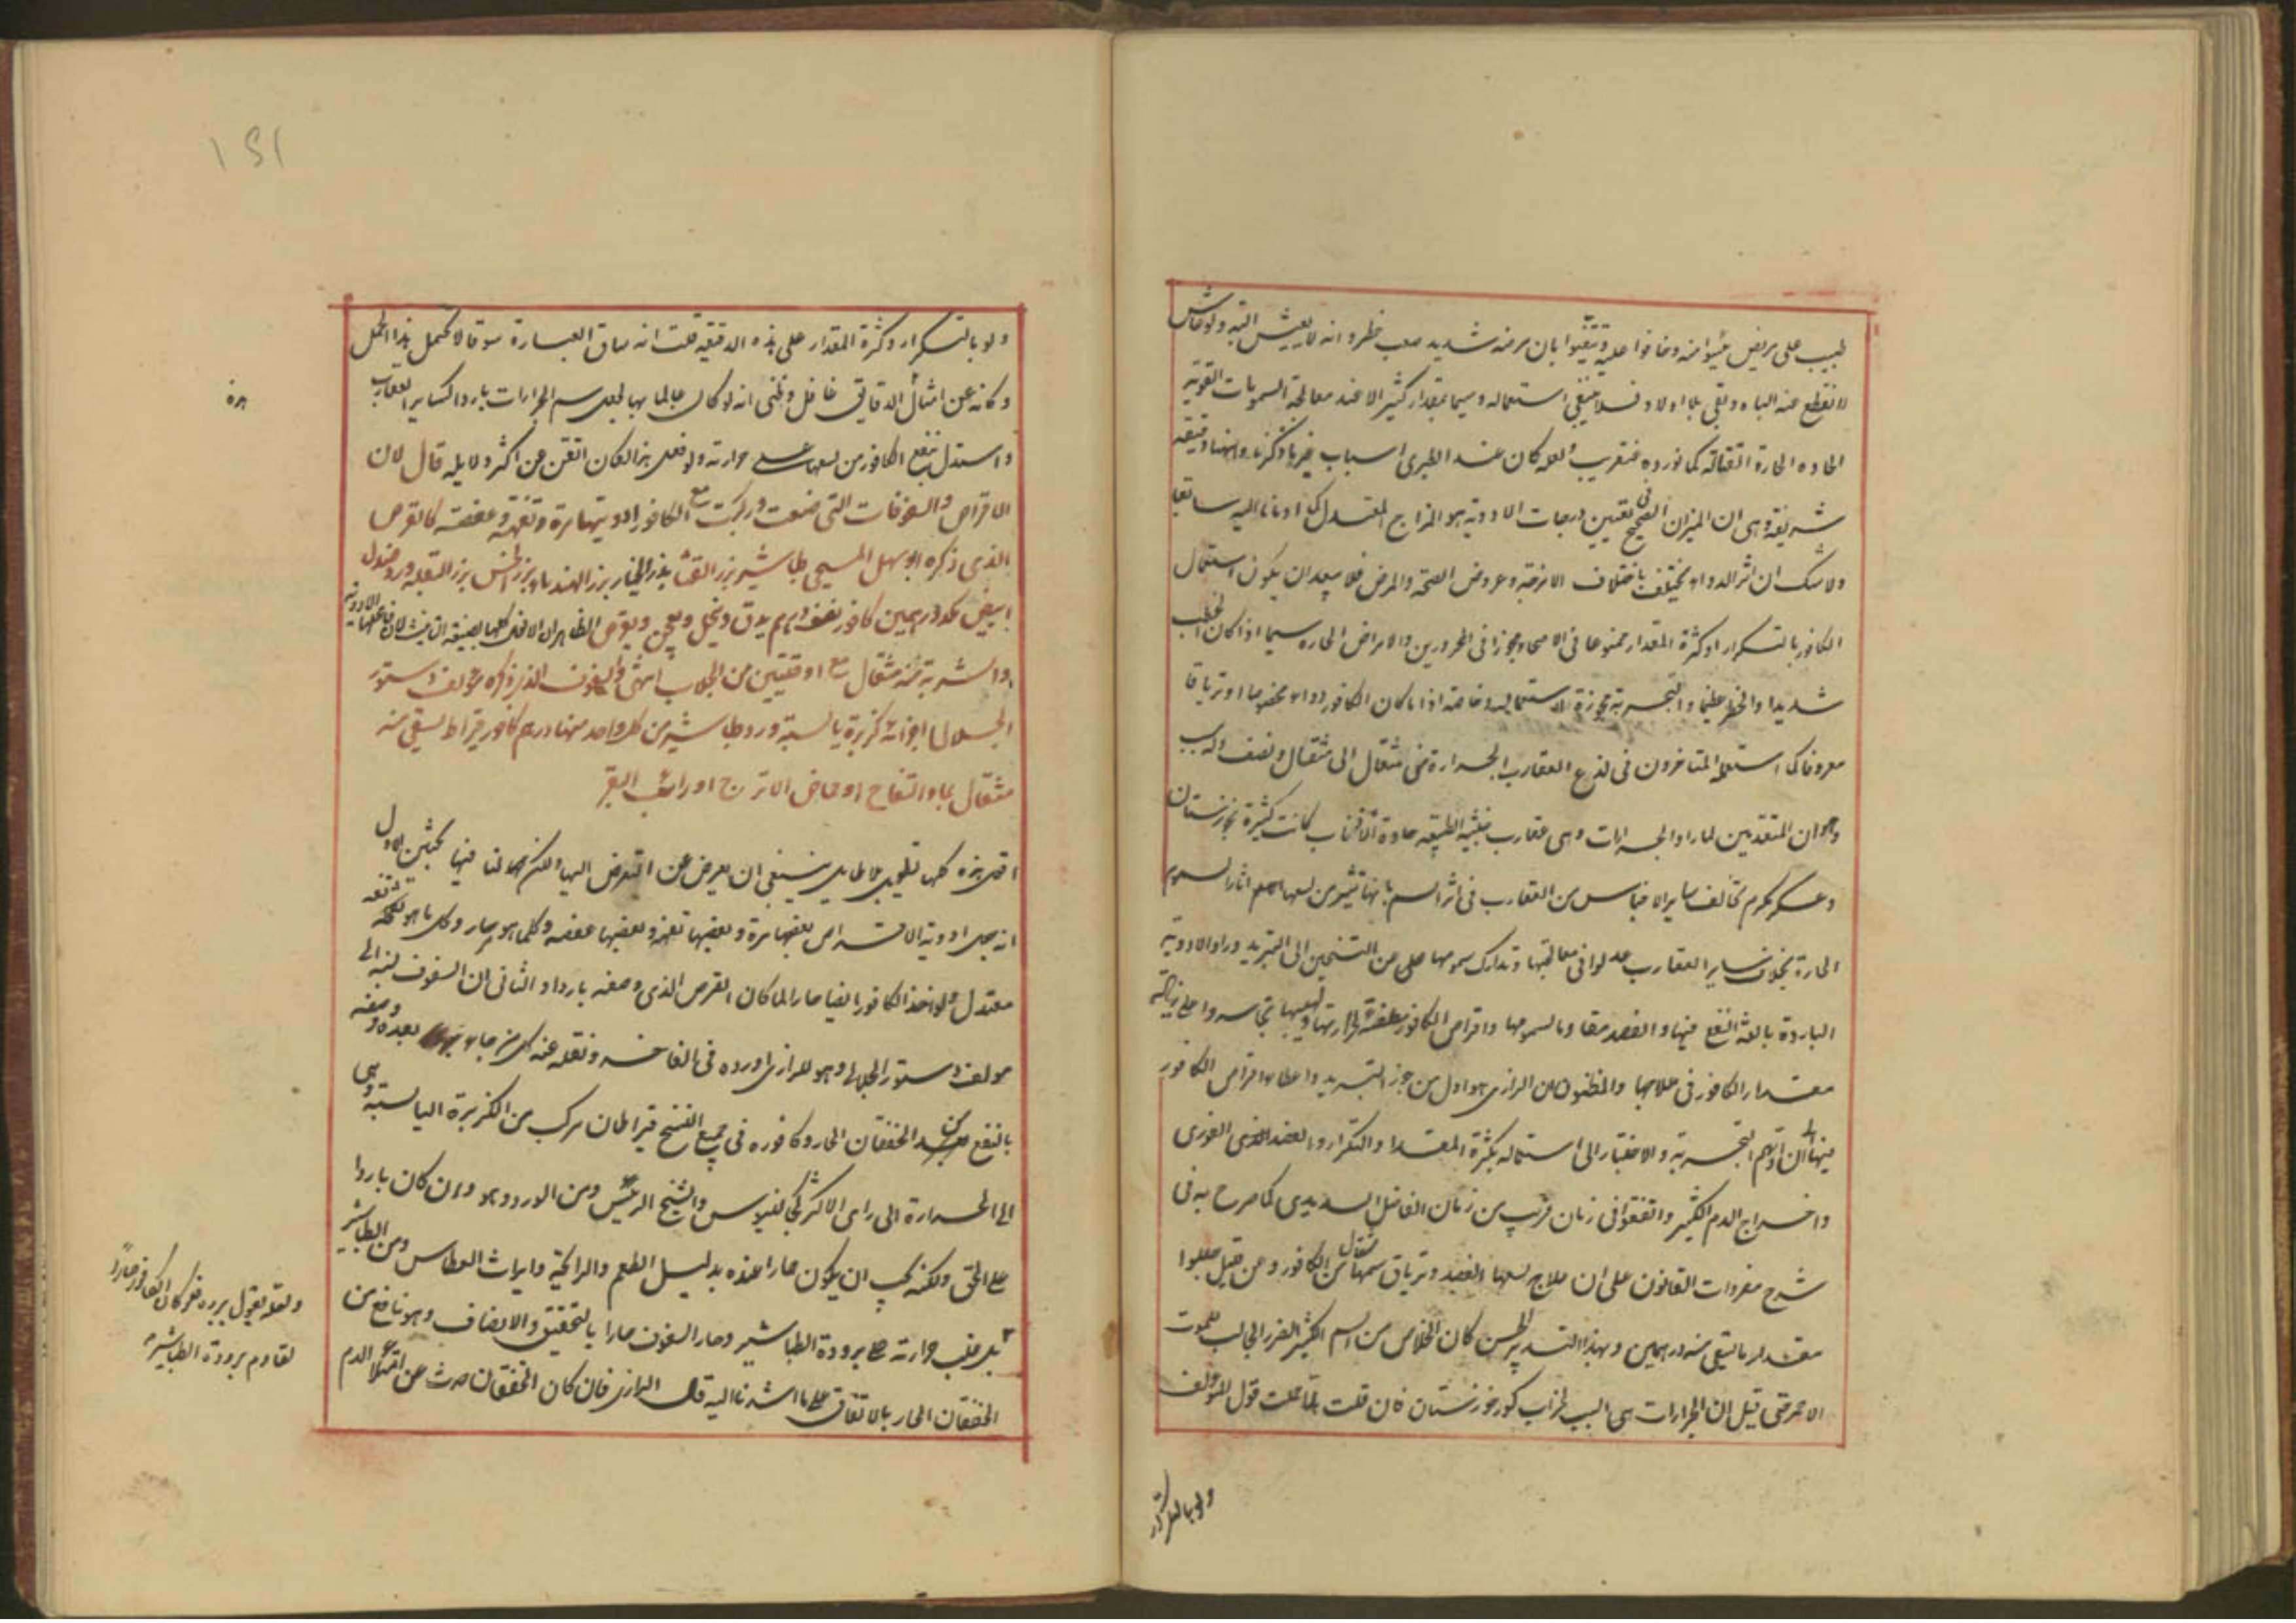 طبيب على مريض يئسوا منه وخافوا عليه وتيقنوا بان مرضه شديد صعب خطر وانه لا يعيش البته ولو عاش
لانقطع عنه الباه وبقى بلا اولاد فلا ينبغى استعماله وسيما بمقدار كثير الا عند معالجة السموميات القوية
الحاده الحارة القتالة كما نورده عنقريب ولعله كان عند الطبرى اسباب غير ما ذكرنا وههنا دقيقة
شريفة وهى ان الميزان الصحيح فى تعيين درجات الادوية هو المزاج المعتدل كما اومانا اليه سابقا
ولا شك ان اثر الدواء يختلف باختلاف الامزجة وعروض الصحة والمرض فلا يبعد ان يكون استعمال
الكافور بالتكرار او كثرة المقدار ممنوعا فى الاصحاء ومجوزا فى المحرورين والامراض الحاره سيما اذا كان
شديدا والخطر عظيما والتجربة مجوزة لاستعماله وخاصة اذا ما كان الكافور دواء مخصوصا او ترياقا
معروفا كما استعمله المتاخرون فى لذع العقارب الجرارة من مثقال الى مثقال ونصف والسبب
المتقدمين لما راوا الجرارات وهى عقارب خبيثه حادة كانت كثيرة بخوزستان
وعسكر مكرم تخالف ساير الاجناس من العقارب فى اثر السم بانها تنتشر من لسعها اثار السموم
الحارة بخلاف ساير العقارب عدلوا فى معالجتها وتدارك سمومها عن التسخين الى التبريد وراوا الادوية
الباردة بالغة النفع فيها والفصد مقاوما لسمومها واقراص الكافور مطفئة لحرارتها ولهيبها تجاسروا على
مقدار الكافور فى علاجها والمظنون ان الرازى هو اول من جوز التبريد واعطاء اقراص الكافور
فيها الى ان ادتهم التجربة والاختبار الى استعماله بكثرة المقدار والتكرار والفصد الفورى
واخراج الدم الكثير واتفقوا فى زمان قريب من زمان الفاضل السديدى كما صرح به فى
شرح مفردات القانون على ان علاج لسعها الفصد وترياق سمها مثقال من الكافور ومن قبل جعلوا
مقدار ما يسقى منه درهمين وبهذا التدبير الحسن كان الخلاص من السم الكثير الضرر الجالب للموت
الاحمر حتى قيل ان الجرارات هى السبب لخراب كور خوزستان فان قلت قول المولف
ولو بالتكرار
١٥١
ولو بالتكرار وكثرة المقدار على هذه الدقيقه قلت انه ساق العبارة سوقا لا يحتمل هذا الحمل
وكانه عن امثال الدقايق غافل وظنى انه لو كان عالما بها لجعل سم الجرارات باردا كساير العقارب
واستدل بنفع الكافور من لسعها على حرارته ولو فعل هذا لكان اتقن من اكثر دلايله قال لان
الاقراص والسفوفات التى صنعت وركبت مع الكافور ادويتها مرة وتفهة وعفصة كالقرص
الذى ذكره ابو سهل المسيحى طباشير بزر القثا بذر الخيار بزر الهندباء بزر الخس بزر البقله ورد صندل
ابيض كدرهمين كافور نصف درهم يدق وينخل ويعجن ويقرص الظاهر ان الافعال كلها بصيغة التانيث لان فاعلها الادويه
والشربة منه مثقال مع اوقيتين من الجلاب انتهى والسفوف الذى ذكره مولف دستور
الجلالى اجزائه كزبرة يابسة وورد وطباشير من كل واحد منها درهم كافور قيراط يسقى منه
مثقال بماء التفاح او حماض الاترج او رائب البقر
اقول هذه كلها تطويل بلا طايل ينبغى ان يعرض عن التعرض اليها ولكن لنا فيها بحثين الاول
انه جعل ادوية الاقراص بعضها مرة وبعضها تفهة وبعضها عفصه وكلما هو مر حار وكل ما هو تفه
معتدل ولو اخذ الكافور ايضا حارا لما كان القرص الذى وصفه باردا والثانى ان السفوف نسبه الى
مولف دستور الجلالى وهو للرازى اورده فى الفاخر ونقله عنه كل من جاء بعده ووصفه
بالنفع من الخفقان الحار وكافوره فى جميع النسخ قيراطان مركب من الكزبرة اليابسة وهى
الى الحرارة الى راى الاكثر كجالينوس والشيخ الرئيس ومن الورد وهو وان كان باردا
على الحق ولكنه يجب ان يكون حارا عنده بدليل الطعم والرائحة وايراث العطاس ومن الطباشير
بل غلب حرارته على برودة الطباشير وصار السفوف حارا بالتحقيق والانصاف وهو نافع من
الخفقان الحار بالاتفاق على ما اشرنا اليه قال الرازى فان كان الخفقان حدث عن امتلاء الدم
ولعله يقول ببرده فلو كان الكافور حارا
لقاوم برودة الطباشير